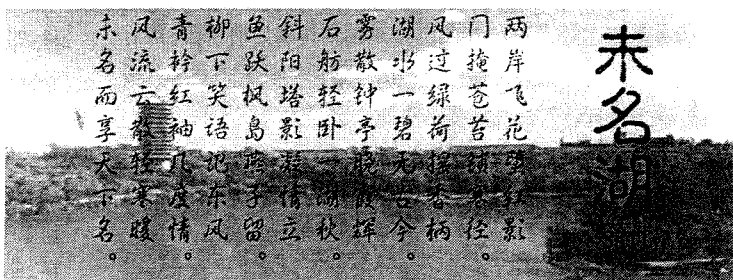 未名湖
两岸飞花影
门掩苍苔径。
风过绿荷香柄
湖水一碧无古今。
雾散钟亭霞辉
石舫轻卧一湖秋。
斜阳塔影凝情立
鱼跃枫岛燕子留。
柳下笑语记东风
青衿红袖几度情。
风流云散轻寒暖
未名而享天下名。